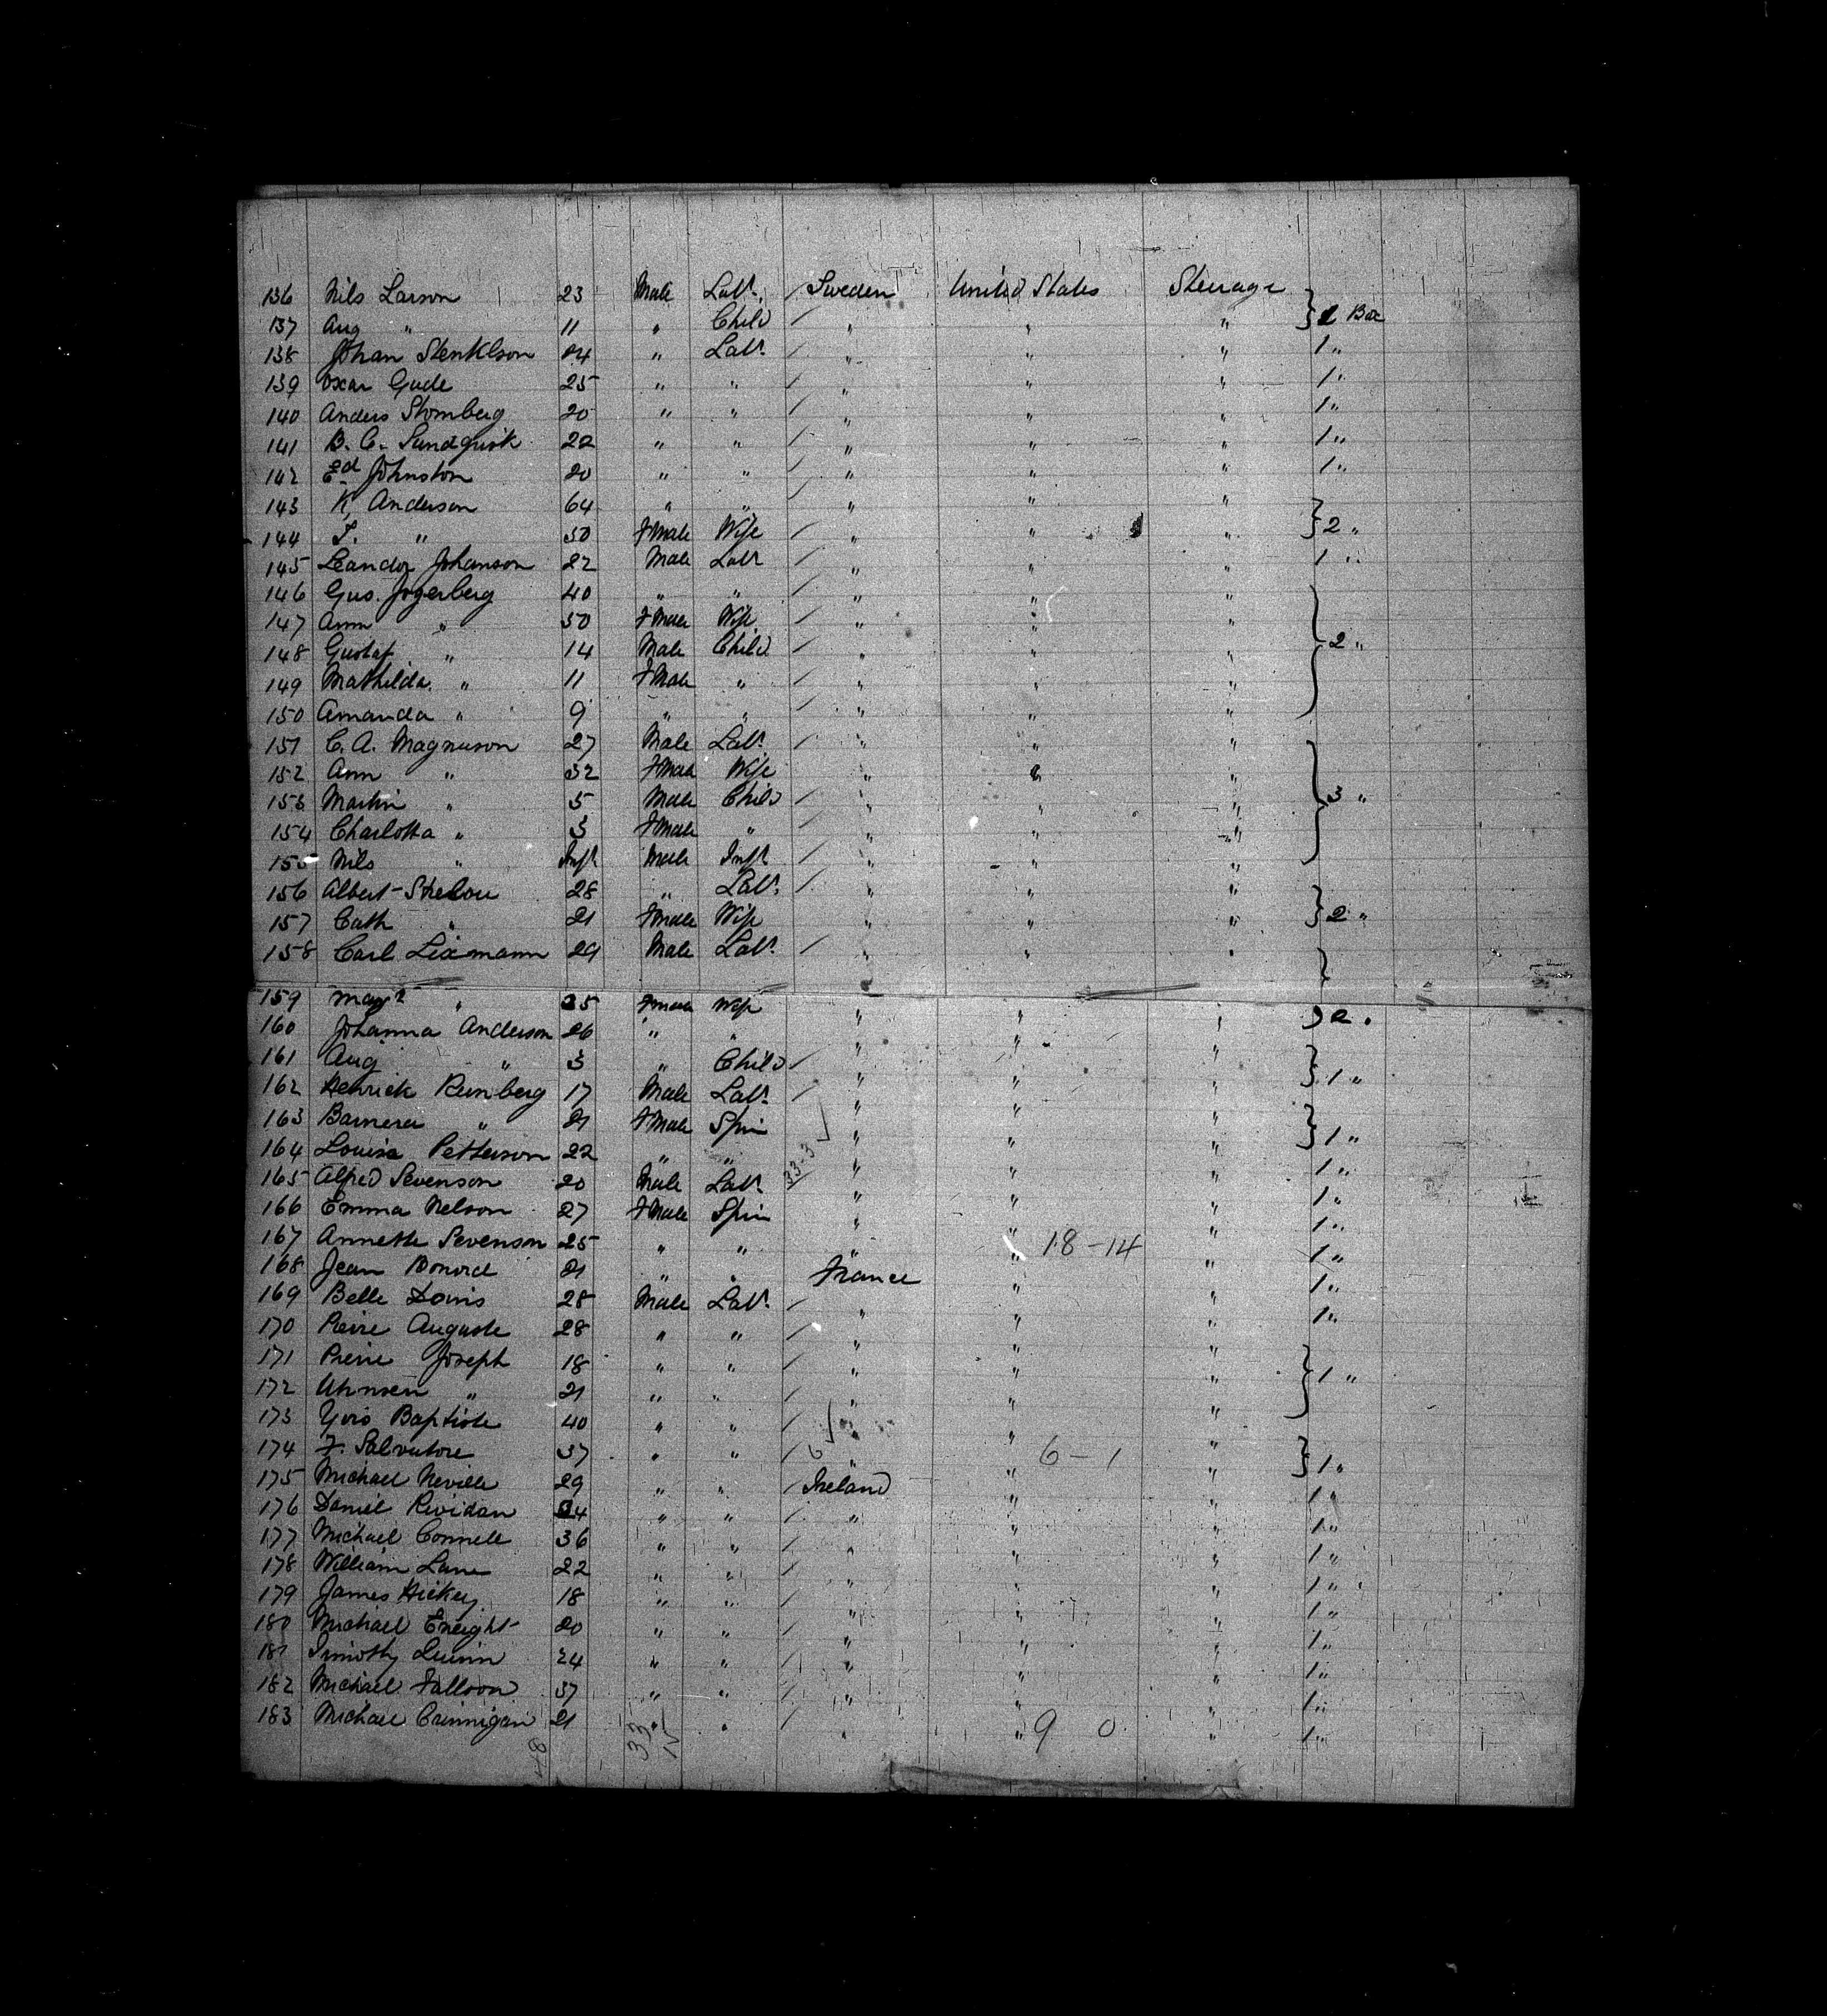 136 Nils Larson 23 Male Labr. / Sweden United States Steerage
137 Aug " 11 " Child / " " " } 1 Box
138 Johan Stenklson 24 " Labr. / " " " 1 "
139 Oscar Gude 25 " " / " " " 1 "
140 Anders Stromberg 20 " " / " " " 1 "
141 B. C. Sundqvist 22 " " / " " " 1 "
142 Ed Johnston 20 " " / " " " 1 "
143 K, Anderson 64 " " / " " "
144 " 50 FMale Wife / " " " } 2 "
145 Leander Johanson 22 Male Labr / " " " 1 "
146 Gus. Jogerberg 40 " " / " " "
147 Ann " 50 FMale Wife / " " "
148 Gustaf " 14 Male Child / " " " } 2 "
149 Mathilda " 11 FMale " / " " "
150 Amanda " 9 " " / " " "
151 C. A. Magnuson 27 Male Labr. / " " "
152 Ann " 32 FMale Wife " " "
153 Martin " 5 Male Child / " " " } 3 "
154 Charlotta " 3 FMale " / " " "
155 Nils " Inft Male Inft / " " "
156 Albert 28 " Labr. / " " "
157 Cath " 21 FMale Wife " " " } 2 "
158 Carl Lixmann 29 Male Labr. / " " " }
159 " 35 FMale Wife " " " } 2 "
160 Johanna Anderson 26 " " " " "
161 Aug " 3 " Child / " " " } 1 "
162 Henrick Runberg 17 Male Labr. / " " "
163 " 21 FMale Spin " " " } 1 "
164 Louisa Petterson 22 " " 33-3 " " " 1 "
165 Alfred Sevenson 20 Male Labr " " " 1 "
166 Emma Nelson 27 FMale Spin " " " 1 "
167 Annette Sevenson 25 " " " " 18-14 " 1 "
168 Jean 21 " " France " " 1 "
169 Belle Davis 28 Male Labr. / " " " 1 "
170 Pierre Auguste 28 " " / " " "
171 Pierre Joseph 18 " " / " " " } 1 "
172 " 21 " " / " " "
173 Yvis Baptiste 40 " " / " " "
174 F. Salvatore 37 " " / 6 " " 6-1 " } 1 "
175 Michael Neville 29 " " / Ireland " " 1 "
176 Daniel Rividan 24 " " / " " " 1 "
177 Michael Connell 36 " " / " " " 1 "
178 William Lane 22 " " / " " " 1 "
179 James Hickey 18 " " / " " " 1 "
180 Michael Enright 20 " " / " " " 1 "
181 Timothy Quinn 24 " " / " " " 1 "
182 Michael Falloon 37 " " / " " " 1 "
183 Michael Crinnigan 21 " " / " " 9 0 " 1 "
48 33 15